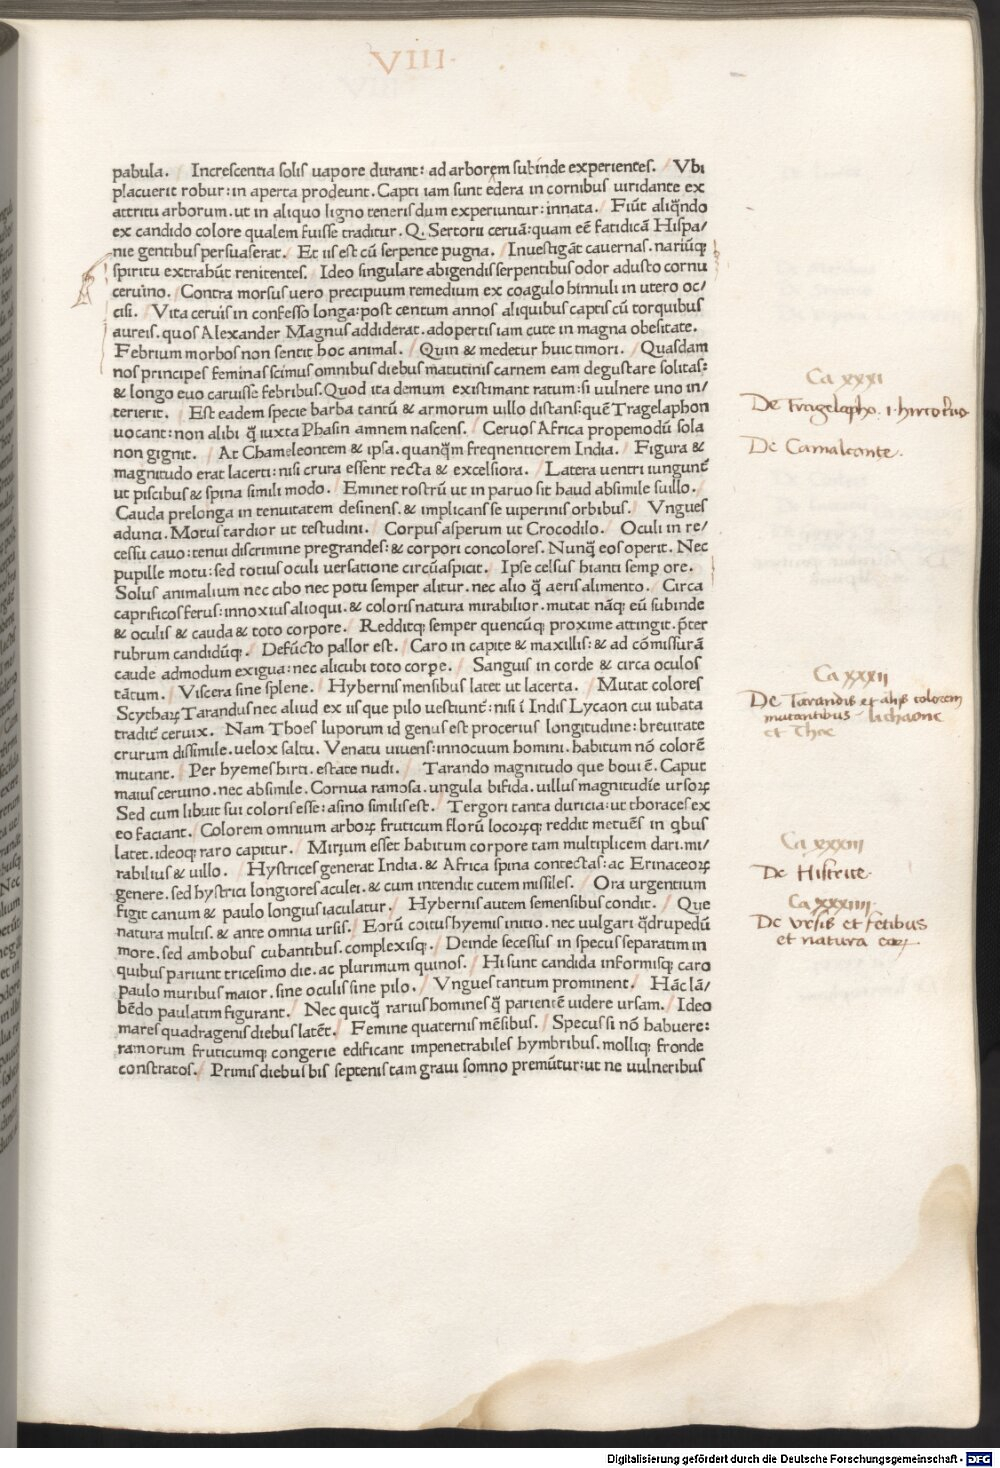 VIII.
pabula. / Increscentia solis uapore durant: ad arborem subinde experientes. / Vbi
placuerit robur: in aperta prodeunt. Capti iam sunt edera in cornibus uiridante ex
attritu arborum. ut in aliquo ligno teneris dum experiuntur: innata. / Fiūt aliq̃ndo
ex candido colore qualem fuisse traditur. Q. Sertorii ceruā: quam eē fatidicā Hispa/
nie gentibus persuaserat. / Et iis est cū serpente pugna. / Inuestigāt cauernas. nariūq;
spiritu extrahūt renitentes. / Ideo singulare abigendis serpentibus odor adusto cornu
ceruino. / Contra morsus uero precipuum remedium ex coagulo hinnuli in utero oc/
cisi. / Vita ceruis in confesso longa: post centum annos aliquibus captis cū torquibus
aureis. quos Alexander Magnus addiderat. adopertis iam cute in magna obesitate.
Febrium morbos non sentit hoc animal. / Quin & medetur huic timori. / Quasdam
nos principes feminas scimus omnibus diebus matutinis carnem eam degustare solitas:
& longo euo caruisse febribus. Quod ita demum existimant ratum: si uulnere uno in/
terierit. / Est eadem specie barba tantū & armorum uillo distans: quē Tragelaphon
uocant: non alibi q̄ iuxta Phasin amnem nascens. / Ceruos Africa propemodū sola
non gignit. / At Chameleontem & ipsa. quanq̄m freqnentiorem India. / Figura &
magnitudo erat lacerti: nisi crura essent recta & excelsiora. / Latera uentri iungunt̄
ut piscibus & spina simili modo. / Eminet rostrū ut in paruo sit haud absimile suillo. /
Cauda prelonga in tenuitatem desinens. & implicans se uiperinis orbibus. / Vngues
adunci. Motus tardior ut testudini. / Corpus asperum ut Crocodilo. / Oculi in re/
cessu cauo: tenui discrimine pregrandes: & corpori concolores. Nunq̄ eos operit. Nec
pupille motu: sed totius oculi uersatione circūaspicit. / Ipse celsus hianti semp ore.
Solus animalium nec cibo nec potu semper alitur. nec alio q̄ aeris alimento. / Circa
caprificos ferus: innoxius alioqui. & coloris natura mirabilior. mutat nāq; eū subinde
& oculis & cauda & toto corpore. / Redditq; semper quencūq; proxime attingit. p̄ter
rubrum candidūq;. / Defūcto pallor est. / Caro in capite & maxillis: & ad cōmissurā
caude admodum exigua: nec alicubi toto corpe. / Sanguis in corde & circa oculos
tātum. / Viscera sine splene. / Hybernis mensibus latet ut lacerta. / Mutat colores
Scythaꝝ Tarandus nec aliud ex iis que pilo uestiunt̄: nisi ī Indis Lycaon cui iubata
tradit̄ ceruix. / Nam Thoes luporum id genus est procerius longitudine: breuitate
crurum dissimile. uelox saltu. Venatu uiuens: innocuum homini. habitum nō colorē
mutant. / Per hyemes hirti. estate nudi. / Tarando magnitudo que boui ē. Caput
maius ceruino. nec absimile. Cornua ramosa. ungula bifida. uillus magnitudīe ursoꝝ
Sed cum libuit sui coloris esse: asino similis est. / Tergori tanta duricia: ut thoraces ex
eo faciant. / Colorem omnium arboꝝ fruticum florū locoꝝq; reddit metuēs in qbus
latet. ideoq; raro capitur. / Mirium esset habitum corpore tam multiplicem dari. mi/
rabilius & uillo. / Hystrices generat India. & Africa spina contectas: ac Erinaceoꝝ
genere. sed hystrici longiores aculei. & cum intendit cutem missiles. / Ora urgentium
figit canum & paulo longius iaculatur. / Hybernis autem se mensibus condit. / Que
natura multis. & ante omnia ursis. / Eorū coitus hyemis initio. nec uulgari q̄drupedū
more. sed ambobus cubantibus. complexisq;. / Deinde secessus in specus separatim in
quibus pariunt tricesimo die. ac plurimum quinos. / Hi sunt candida informisq; caro
paulo muribus maior. sine oculis sine pilo. / Vngues tantum prominent. / Hāc lā/
bēdo paulatim figurant. / Nec quicq̄ rarius homines q̄ parientē uidere ursam. / Ideo
mares quadragenis diebus latēt. / Femine quaternis mēsibus. / Specus si nō habuere:
ramorum fruticumq; congerie edificant impenetrabiles hymbribus. molliq; fronde
constratos. / Primis diebus bis septenis tam graui somno premūtur: ut ne uulneribus
Ca xxxi
De Tragelapho. i. hircoceruo
De Camaleonte.
Ca xxxii
De Tarandis et aliis colorem
mutantibus lichaone
et Thoe
Ca xxxiii
De Histrice.
Ca xxxiiii.
De vrsis et fetibus
et natura eoꝝ
Digitalisierung gefördert durch die Deutsche Forschungsgemeinschaft - DFG